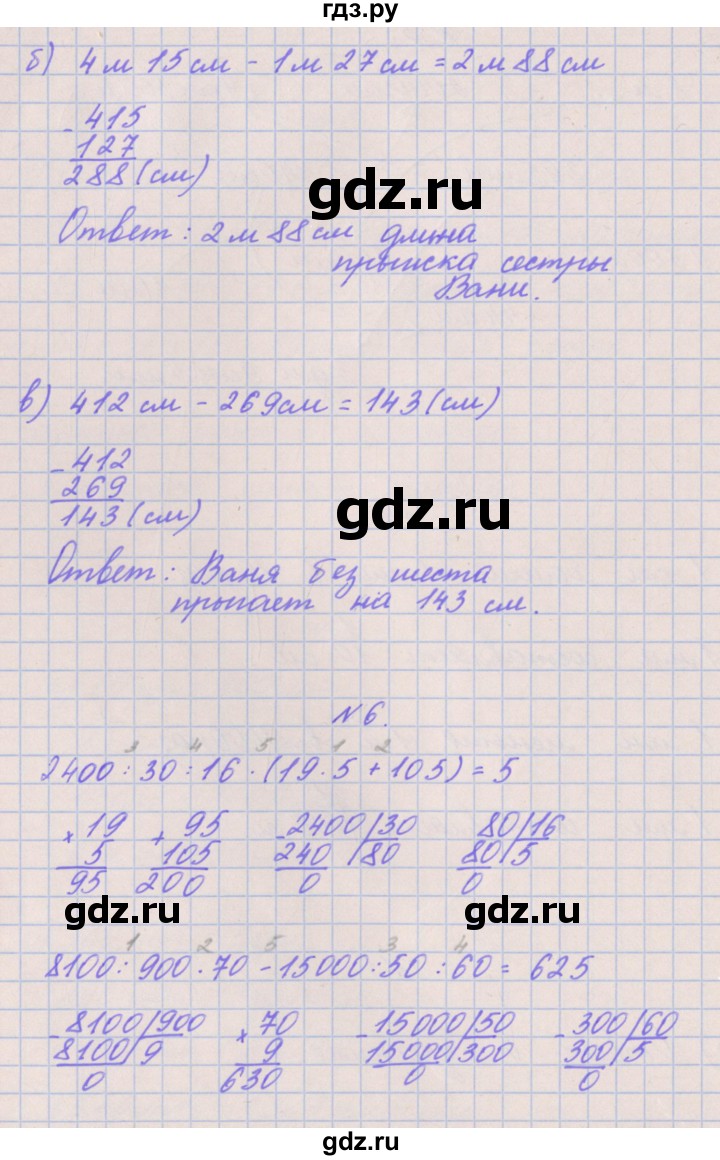 гдз.ру
б) 4 м 15 см - 1 м 27 см = 2 м 88 см
- 415
127
288 (см)
gdz.ru
Ответ: 2 м 88 см длина
прыжка сестры
Вани.
в) 412 см - 269 см = 143 (см)
- 412
269
143 (см)
gdz.ru
Ответ: Ваня без шеста
прыгает на 143 см.
№ 6.
3 4 5 1 2
2400 : 30 : 16 · (19 · 5 + 105) = 5
× 19 + 95 - 2400/30 80/16
5 105 240 /80 80/5
95 200 0 0
gdz.ru gdz.ru
1 2 5 3 4
8100 : 900 · 70 - 15000 : 50 : 60 = 625
- 8100/900 × 70 - 15000/50 - 300/60
8100/9 9 15000/300 300/5
0 630 0 0
gdz.ru